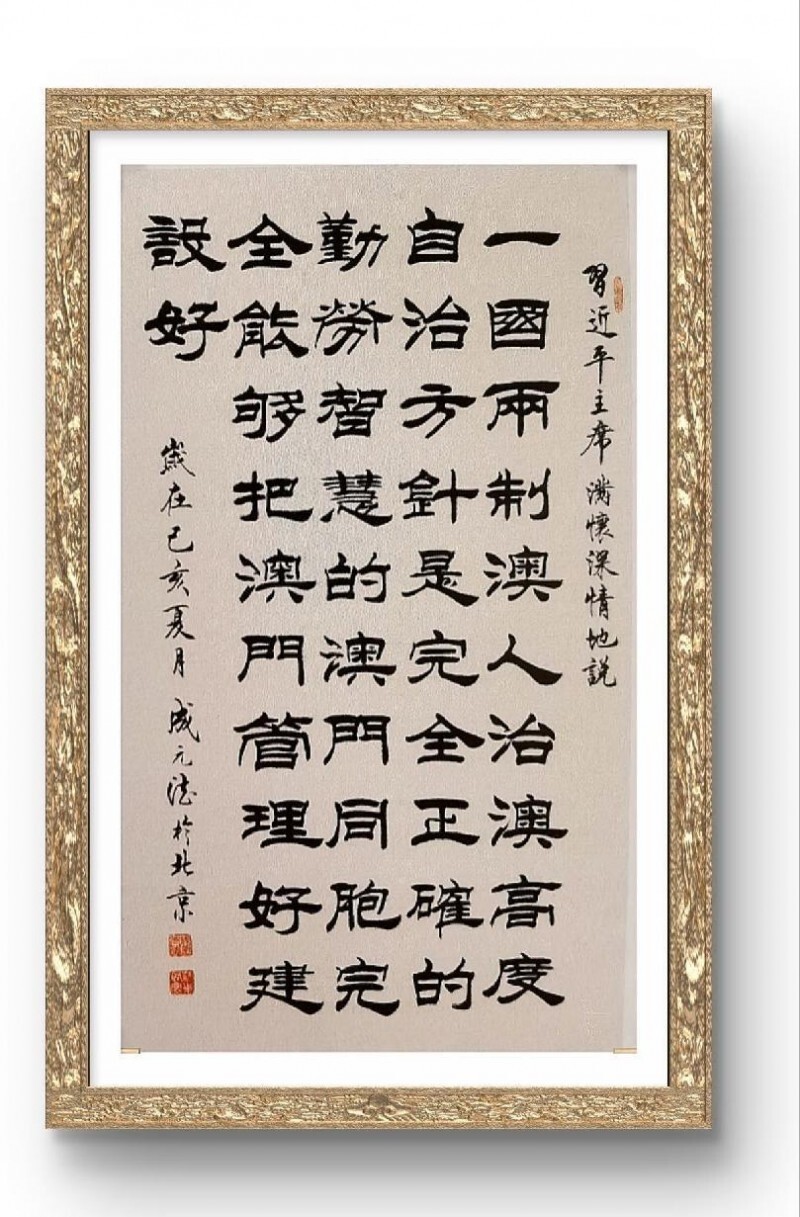 習近平主席满懷深情地説
一國兩制澳人治澳高度
自治方針是完全正確的
勤勞智慧的澳門同胞完
全能够把澳門管理好建
設好
歲在己亥夏月 成元法於北京